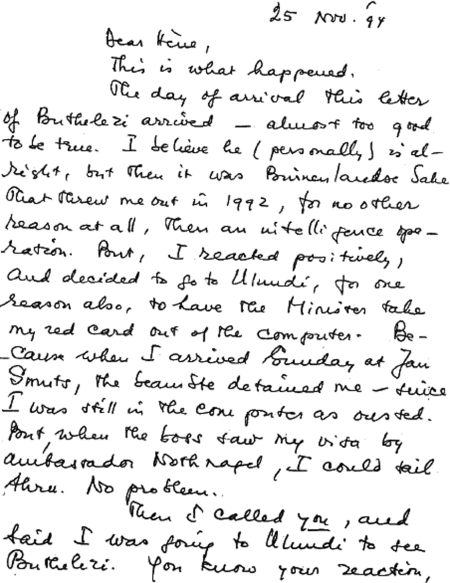 25 Nov. '94
Dear Hène,
This is what happened.
The day of arrival this letter
of Buthelezi arrived – almost too good
to be true. I believe he (personally) is al-
right, but then it was Binnenlandse Sake
that threw me out in 1992, for no other
reason at all, then an intelligence ope-
ration. But, I reacted positively,
and decided to go to Ulundi, for one
reason also, to have the Minister take
my red card out of the computer. Be-
cause when I arrived Sunday at Jan
Smuts, the beamSte detained me – since
I was still in the computer as ousted.
But, when the boss saw my visa by
ambassador Nothnagel, I could sail
thru. No problem.
Then I called you, and
said I was going to Ulundi to see
Buthelezi. You know your reaction,